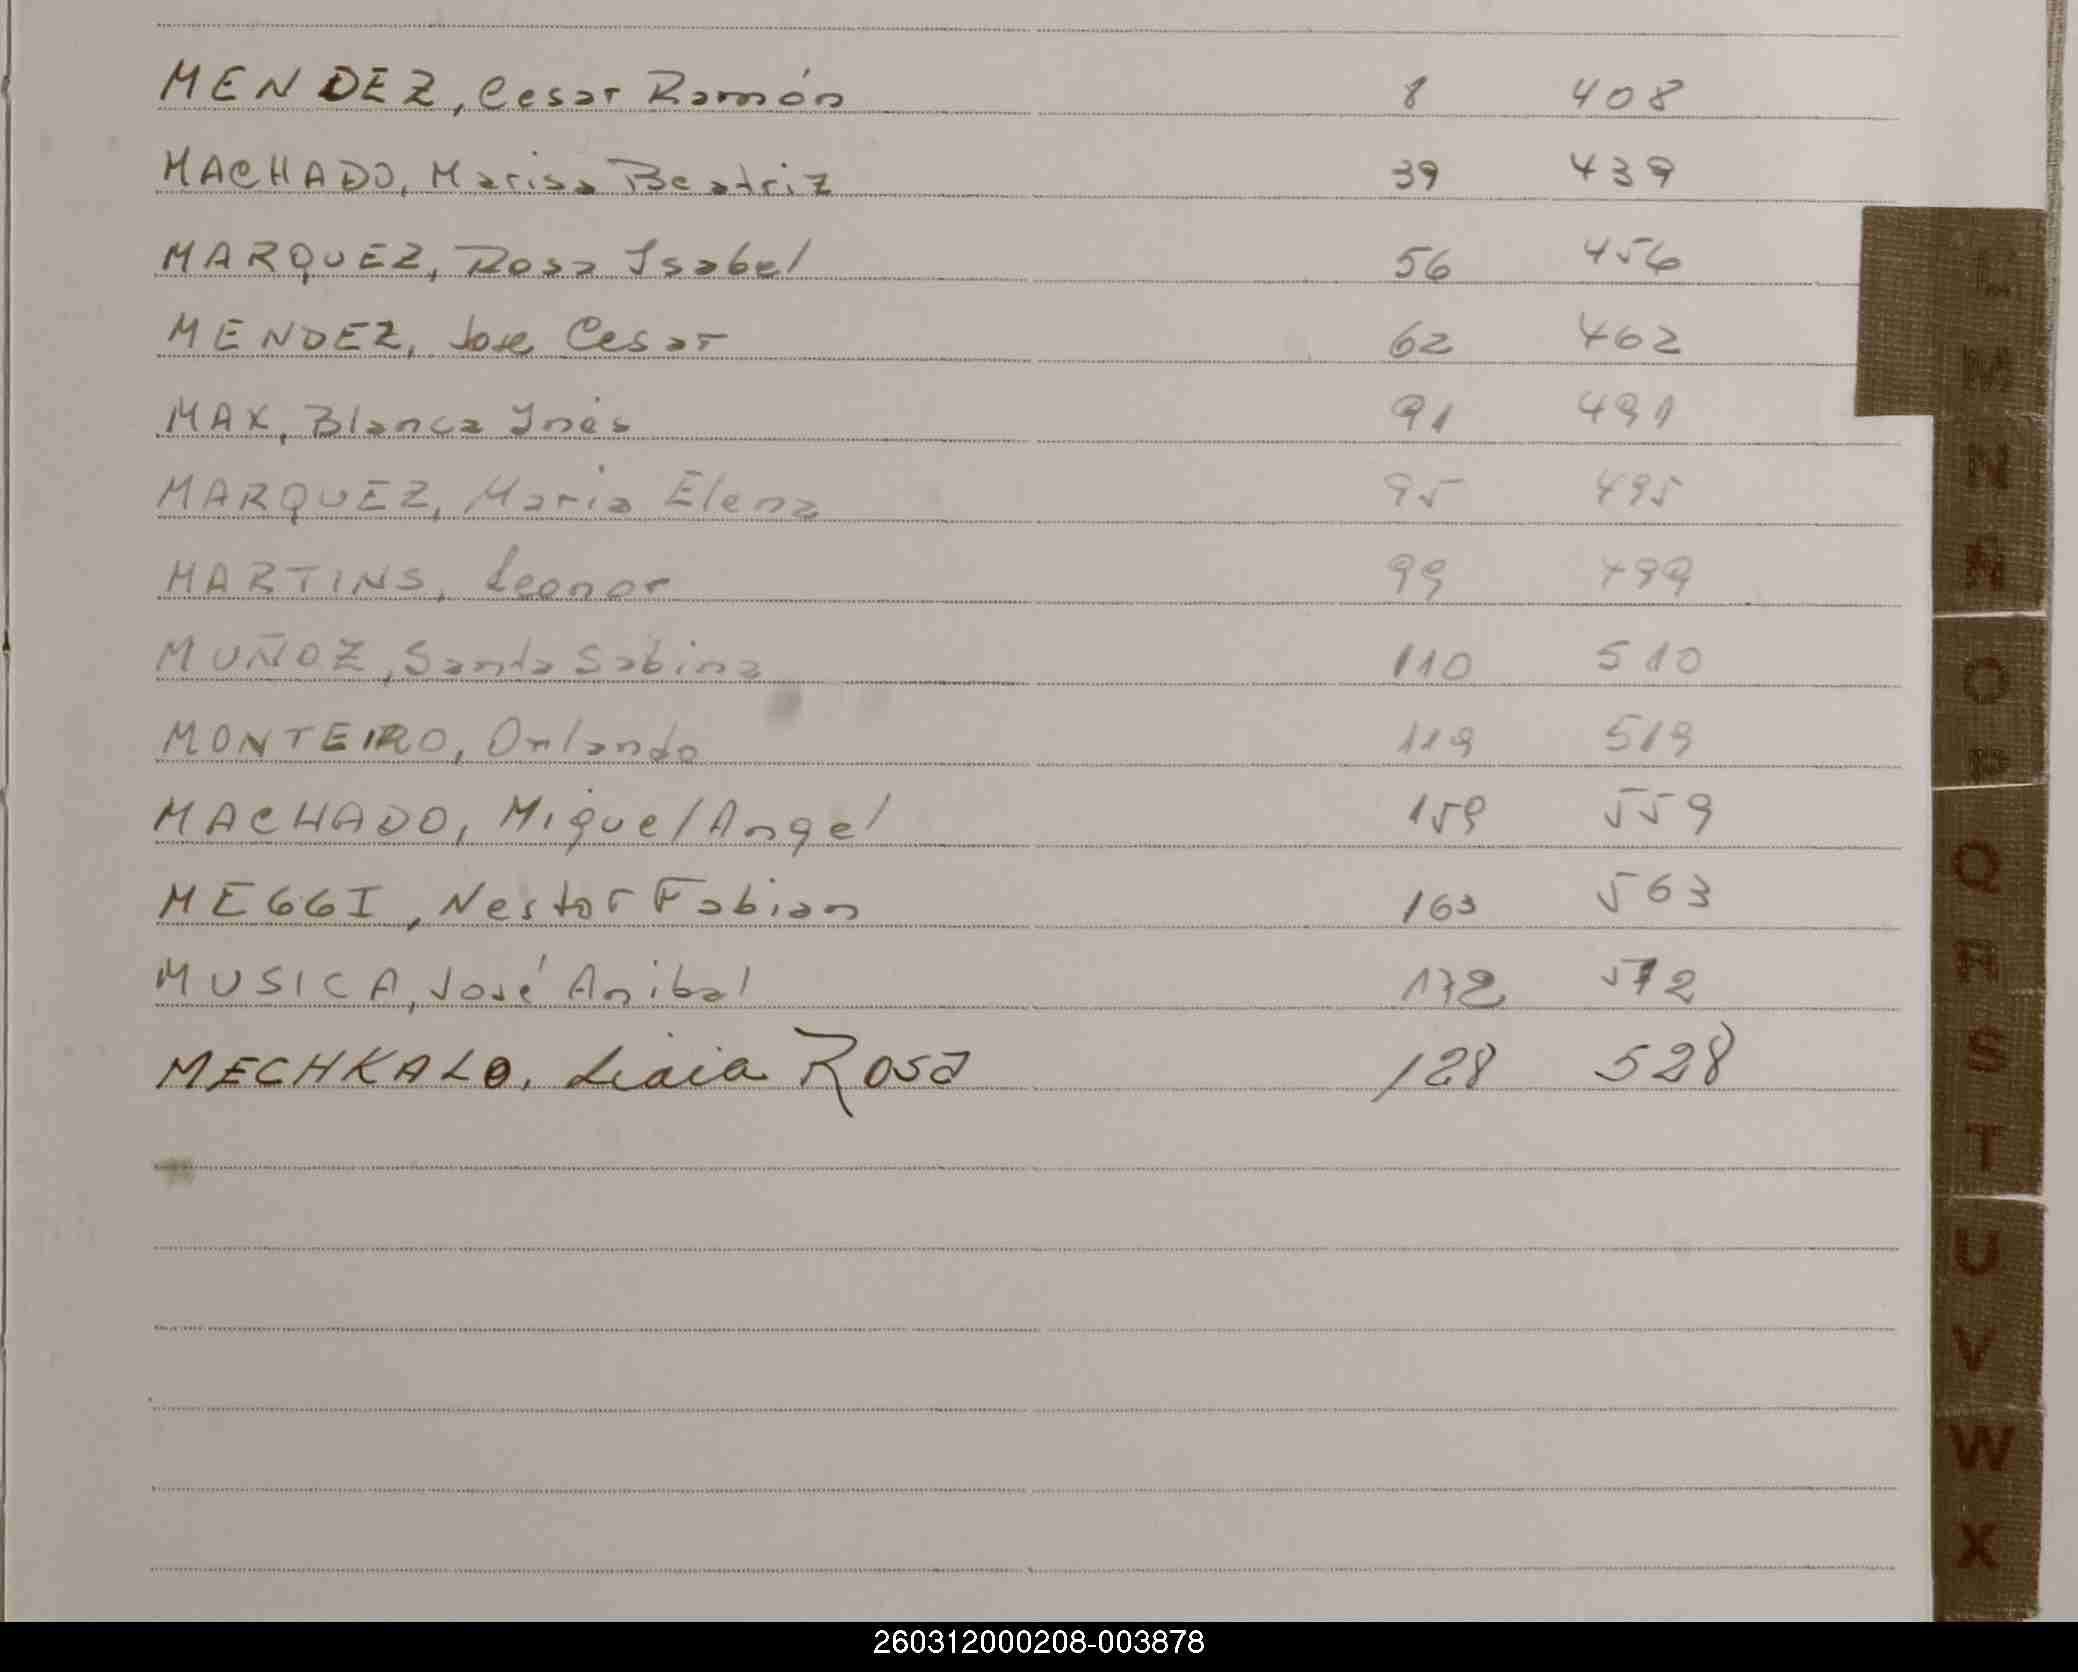 MENDEZ, Cesar Ramón 8 408
MACHADO, Marisa Beatriz 39 439
MARQUEZ, Rosa Isabel 56 456
MENDEZ, Jose Cesar 62 462
MAX, Blanca Inés 91 491
MARQUEZ, Maria Elena 95 495
MARTINS, Leonor 99 499
MUÑOZ, Santa Sabina 110 510
MONTEIRO, Orlando 119 519
MACHADO, Miguel Angel 159 559
MEGGI, Nestor Fabian 163 563
MUSICA, José Anibal 172 572
MECHKALO, Rosa 128 528
L
M
N
Ñ
O
P
Q
R
S
T
U
V
W
X
260312000208-003878